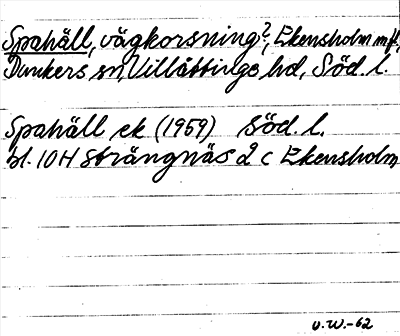 Spahäll, vägkorsning?, Ekensholm mfl,
Dunkers sn, Villåttinge hd, Söd. l.
Spahäll ek (1959) Söd. l.
bl. 10H Strängnäs 2 c Ekensholm
U.W.-62